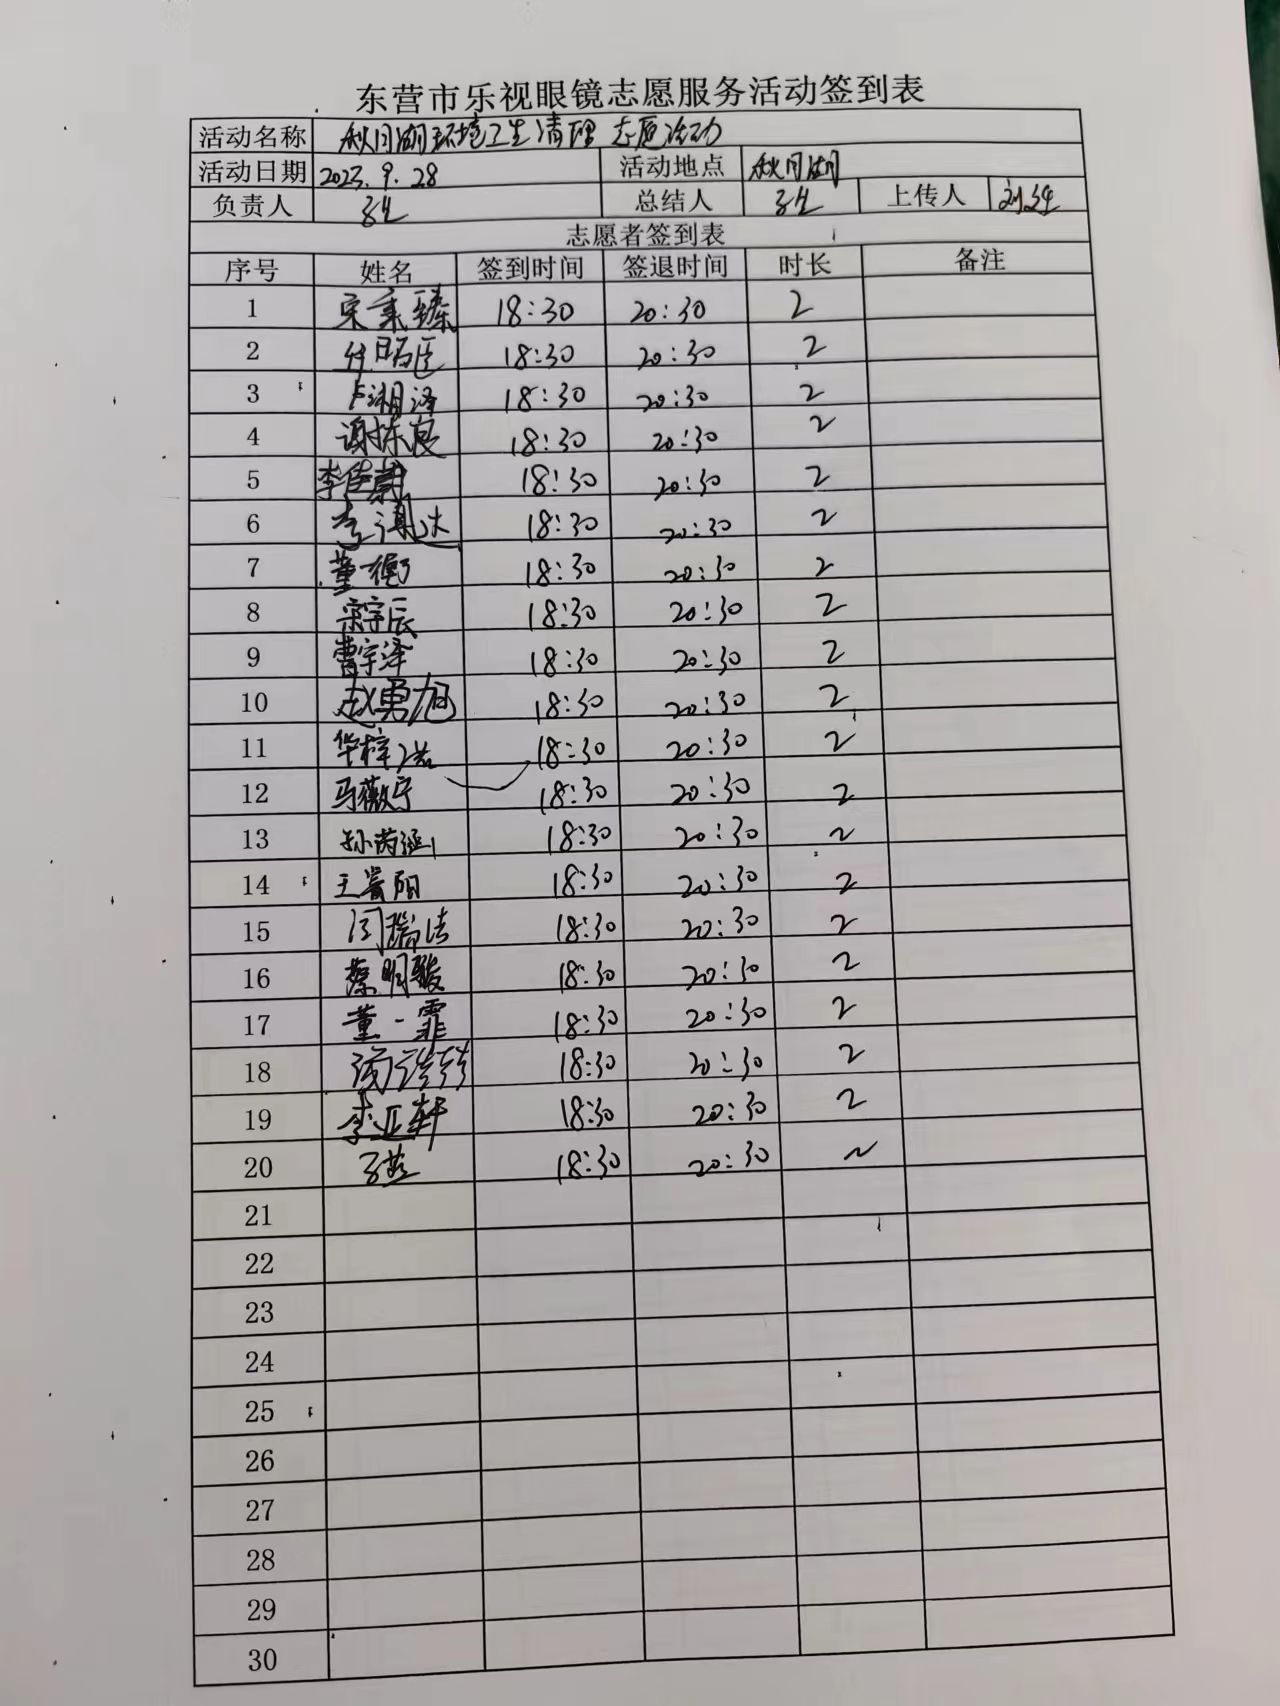 东营市乐视眼镜志愿服务活动签到表
活动名称 秋月湖环境卫生清理志愿活动
活动日期 2023.9.28 活动地点 秋月湖
负责人 总结人 上传人
志愿者签到表
序号 姓名 签到时间 签退时间 时长 备注
1 宋秉臻 18:30 20:30 2
2 18:30 20:30 2
3 卢湘泽 18:30 20:30 2
4 18:30 20:30 2
5 18:30 20:30 2
6 18:30 20:30 2
7 董衡 18:30 20:30 2
8 宋宇辰 18:30 20:30 2
9 曹宇泽 18:30 20:30 2
10 赵勇旭 18:30 20:30 2
11 华梓诺 18:30 20:30 2
12 马薇宁 18:30 20:30 2
13 18:30 20:30 2
14 18:30 20:30 2
15 闫瑞洁 18:30 20:30 2
16 蔡明骏 18:30 20:30 2
17 董一霏 18:30 20:30 2
18 18:30 20:30 2
19 李亚轩 18:30 20:30 2
20 18:30 20:30 2
21
22
23
24
25
26
27
28
29
30